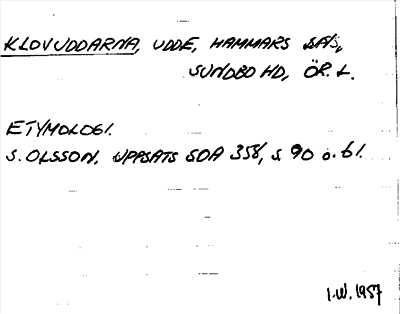 KLOVUDDARNA, UDDE, HAMMARS SN,
SUNDBO HD, ÖR. L.
ETYMOLOGI.
S. OLSSON. UPPSATS SOA 358, S. 90 o. 61.
I.W. 1957